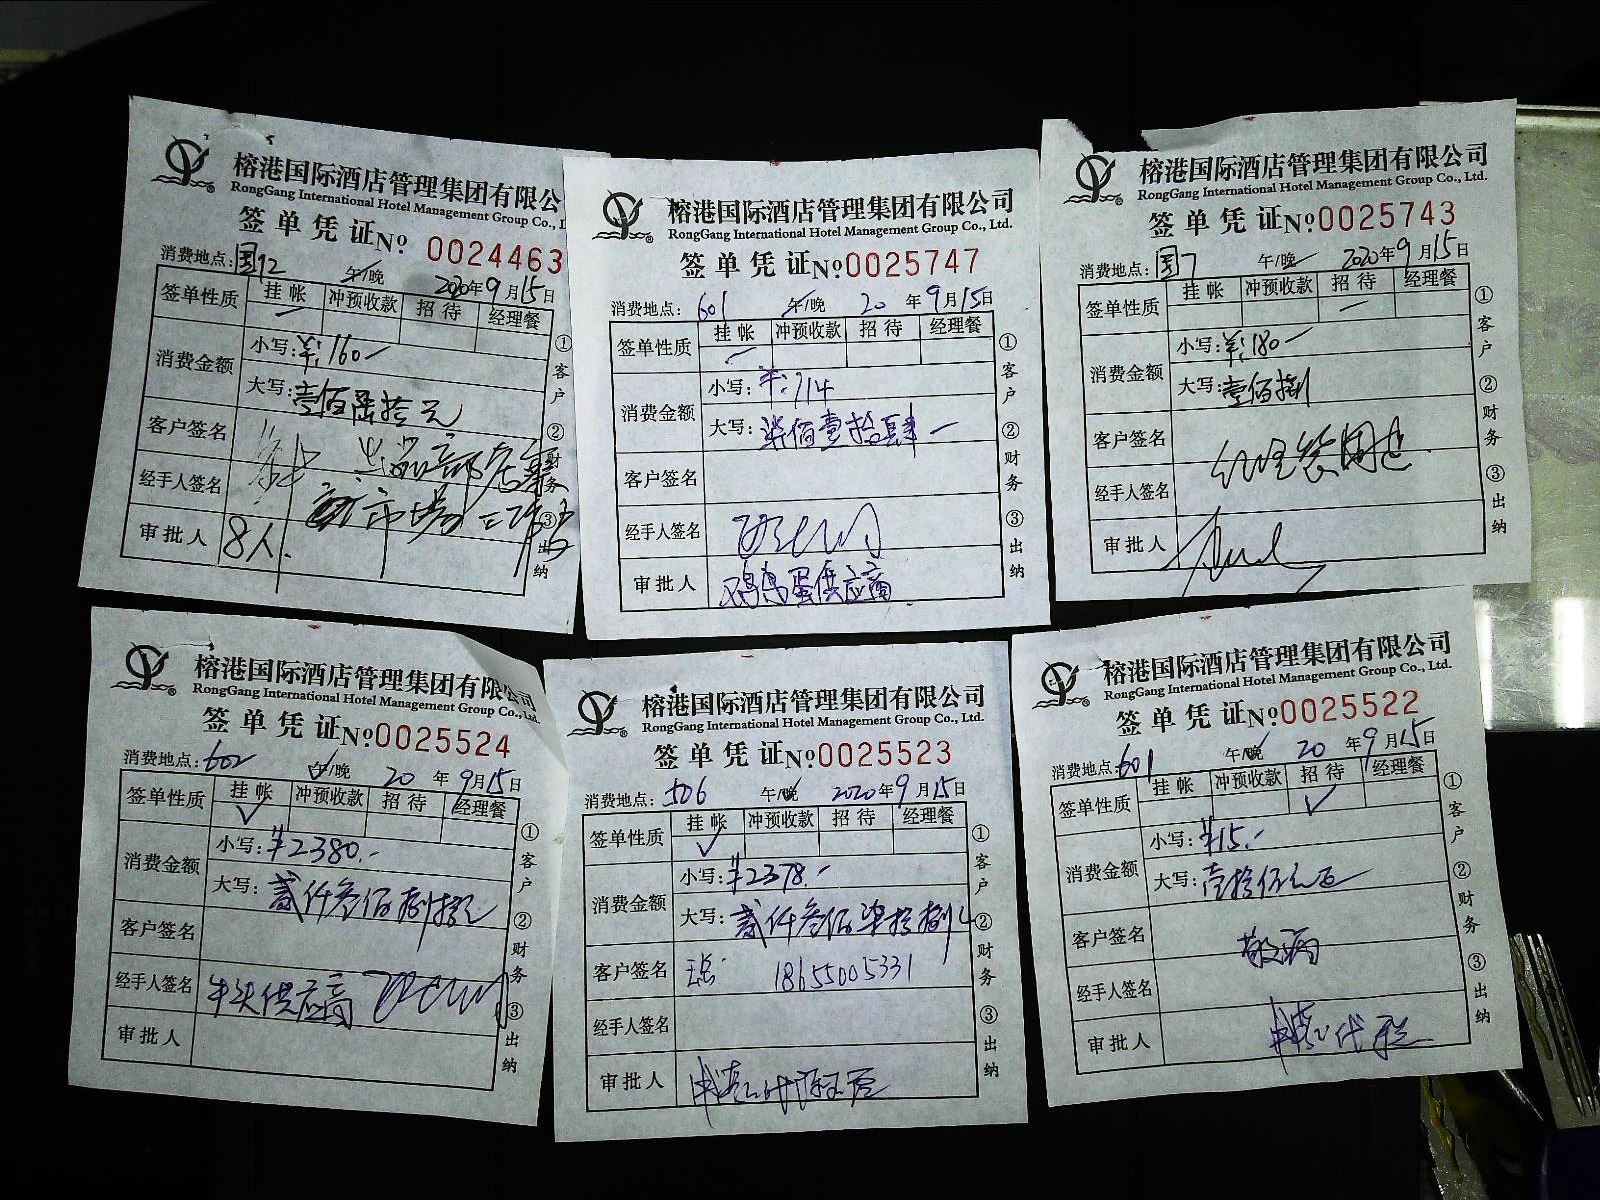 榕港国际酒店管理集团有限公
RongGang International Hotel Management Group Co.,
签单凭证No. 0024463
消费地点: 午/晚 2020年9月15日
签单性质 挂帐 冲预收款 招待 经理餐
消费金额 小写:¥:160-
大写:壹佰陆拾元
客户签名
经手人签名
审批人 8人.
①客户 ②财务 ③出纳
榕港国际酒店管理集团有限公司
RongGang International Hotel Management Group Co., Ltd.
签单凭证No. 0025747
消费地点: 601 午/晚 20 年9月15日
签单性质 挂帐 冲预收款 招待 经理餐
消费金额 小写:¥:714
大写:柒佰壹拾肆-
客户签名
经手人签名
审批人 鸡鸟蛋供应商
①客户 ②财务 ③出纳
榕港国际酒店管理集团有限公司
RongGang International Hotel Management Group Co., Ltd.
签单凭证No. 0025743
消费地点: 午/晚 2020年9月15日
签单性质 挂帐 冲预收款 招待 经理餐
消费金额 小写:¥:180-
大写:壹佰捌
客户签名
经手人签名
审批人
①客户 ②财务 ③出纳
榕港国际酒店管理集团有限公司
RongGang International Hotel Management Group Co., Ltd.
签单凭证No. 0025524
消费地点: 602 午/晚 20 年9月15日
签单性质 挂帐 冲预收款 招待 经理餐
消费金额 小写:¥2380.-
大写:贰仟叁佰捌拾元
客户签名
经手人签名 牛头供应商
审批人
①客户 ②财务 ③出纳
榕港国际酒店管理集团有限公司
RongGang International Hotel Management Group Co., Ltd.
签单凭证No. 0025523
消费地点: 506 午/晚 2020年9月15日
签单性质 挂帐 冲预收款 招待 经理餐
消费金额 小写:¥2378.-
大写:贰仟叁佰柒拾捌
客户签名 18655005331
经手人签名
审批人
①客户 ②财务 ③出纳
榕港国际酒店管理集团有限公司
RongGang International Hotel Management Group Co., Ltd.
签单凭证No. 0025522
消费地点: 601 午/晚 20 年9月15日
签单性质 挂帐 冲预收款 招待 经理餐
消费金额 小写:¥15.-
大写:壹拾伍元正
客户签名 敬酒
经手人签名
审批人
①客户 ②财务 ③出纳